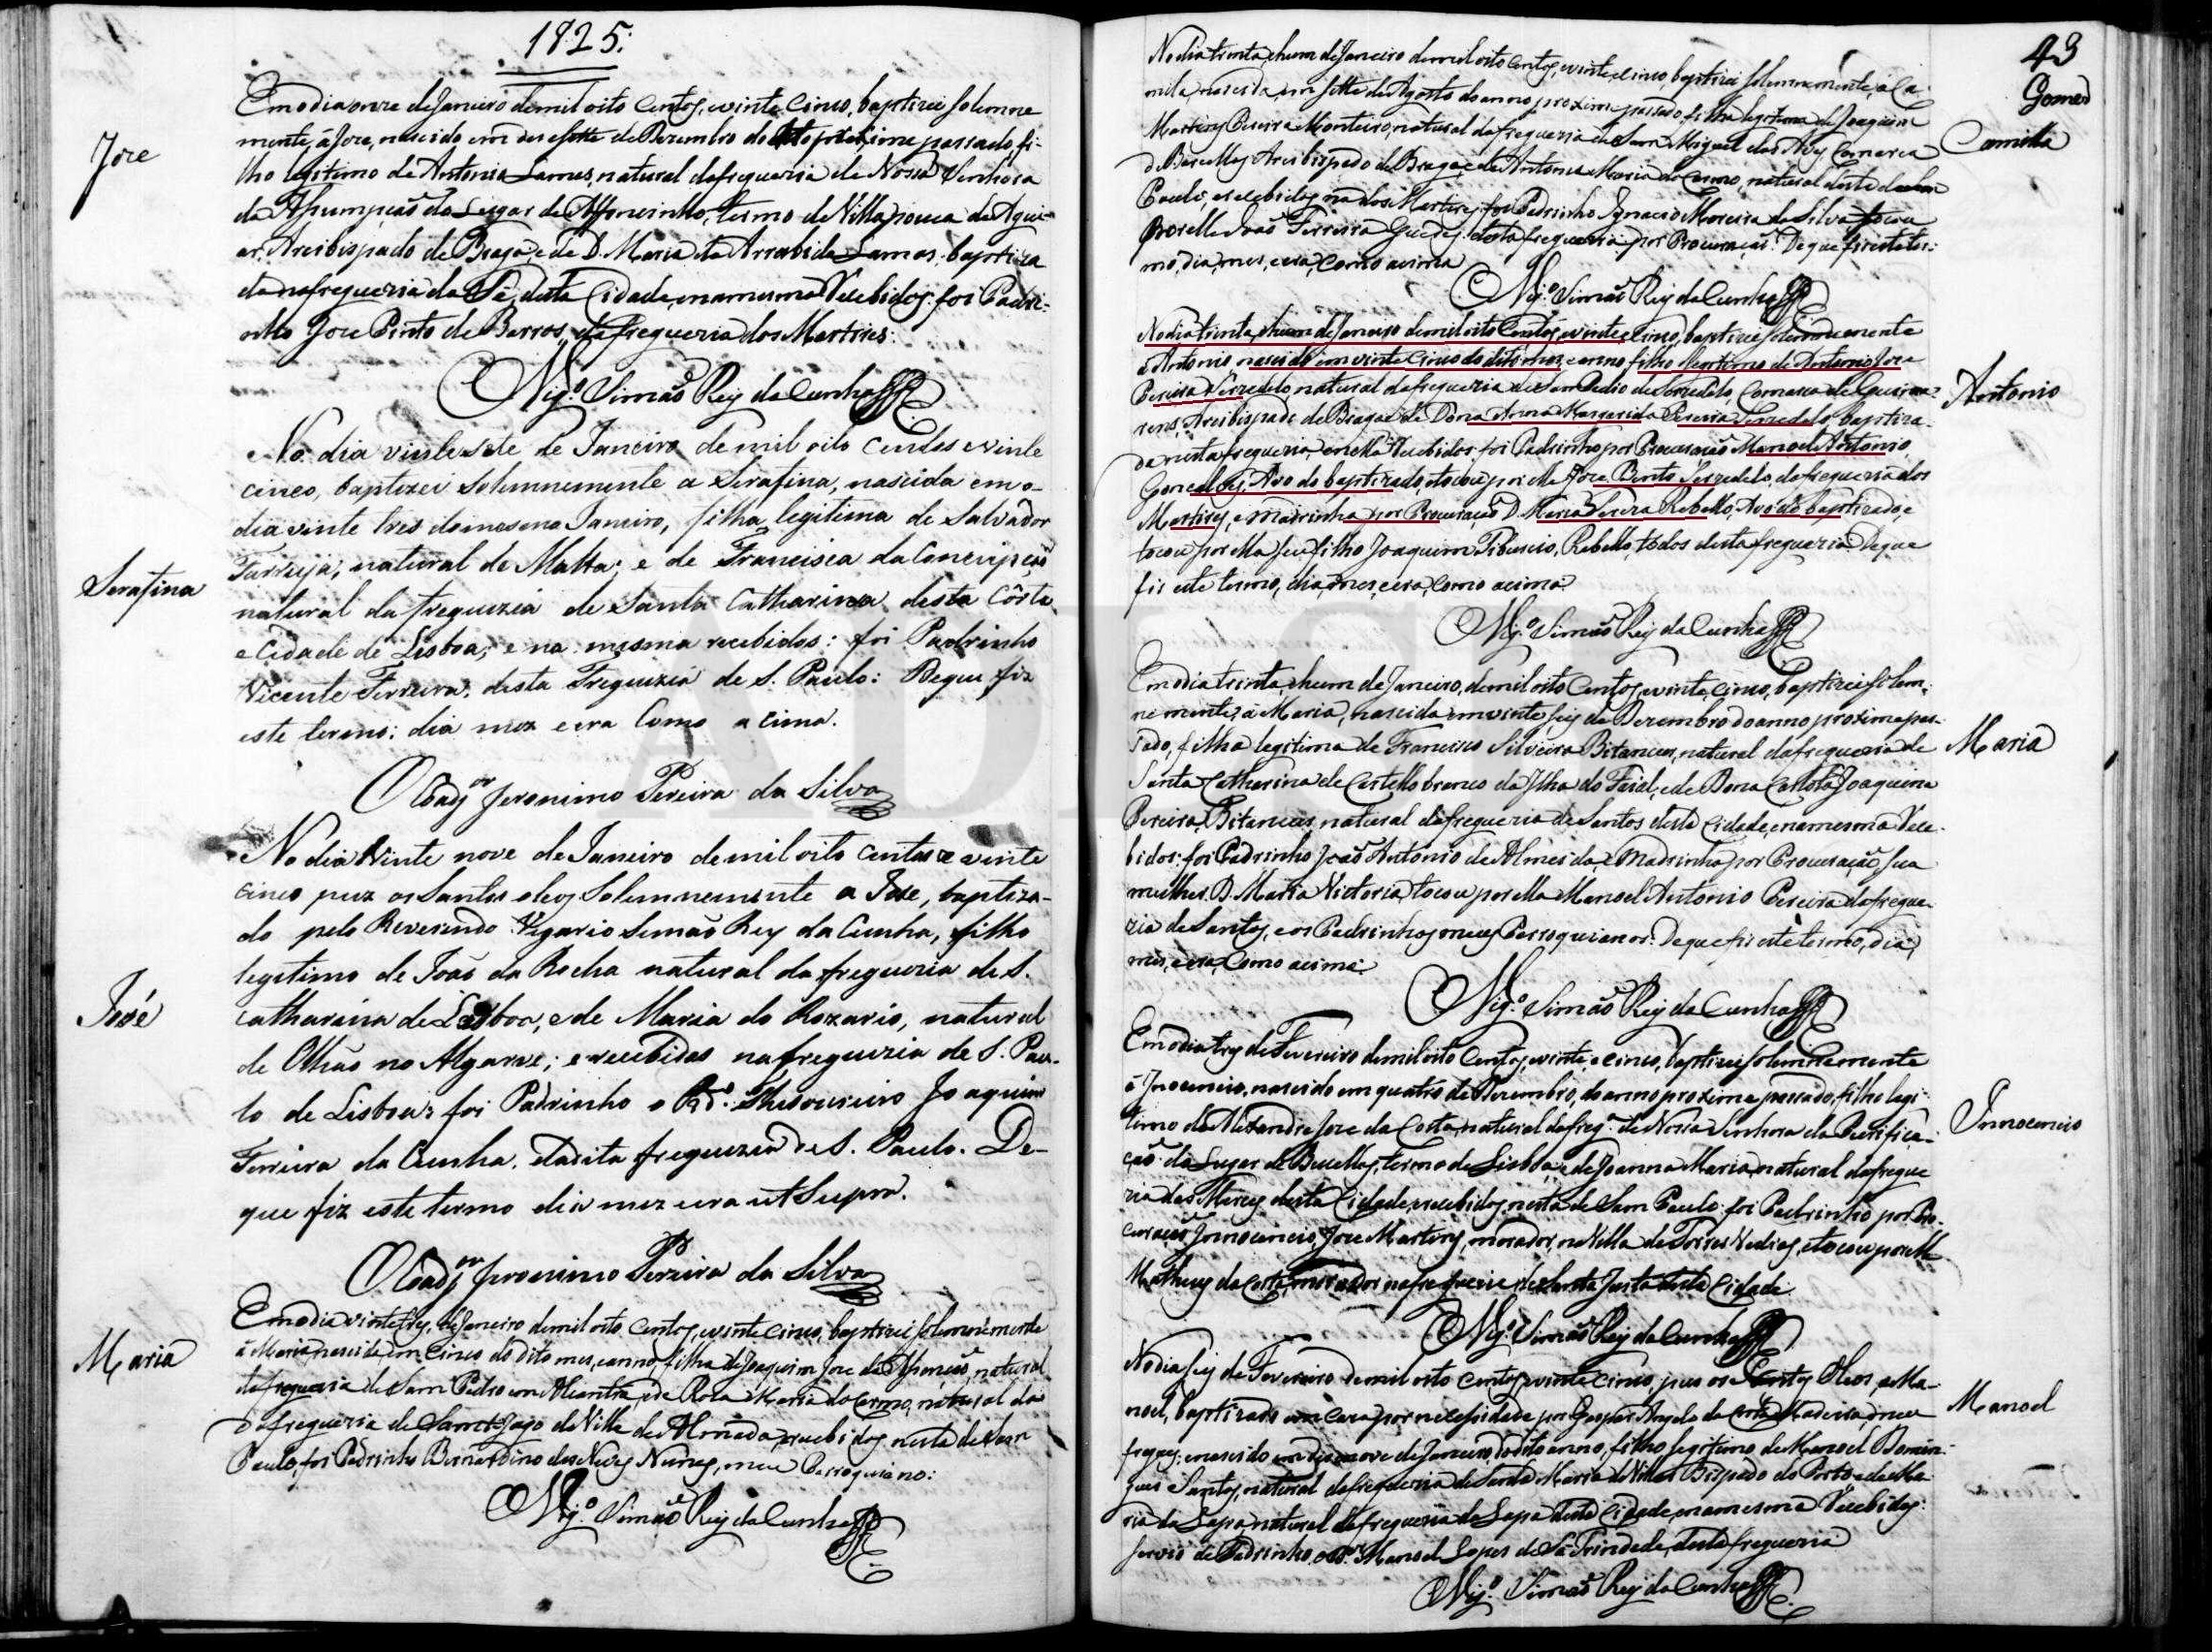 1825.
Jose
Em o dia onze de Janeiro de mil oito centos, e vinte cinco, baptizei solemne
mente, á Jose, nascido em des e sette de Dezembro do proximo passado, fi-
lho legitimo de Antonio Lamas, natural da freguezia de Nossa Senhora
da Assumpção do Lugar de Affoncinho, termo de Villa pouca de Agui-
ar, Arcibispado de Braga, e de D. Maria da Arrabida Lamas, baptiza
da na freguezia da Sé, desta Cidade, e na mesma Recebidos: foi Padri-
nho Jose Pinto de Barros, da freguezia dos Martires:
Vig.º Simão Rey da Cunha
Serafina
No dia vinte sete de Janeiro de mil oito centos e vinte
cinco, baptizei solemnemente a Serafina, nascida em o
dia vinte tres do mesmo Janeiro, filha legitima de Salvador
natural de Malta; e de Francisca da Conceipção
natural da freguezia de Santa Catharina desta Côrte
e Cidade de Lisboa; e na mesma recebidos: foi Padrinho
Vicente Ferreira, desta Freguezia de S. Paulo: Deque fiz
este termo; dia mez e era Como acima.
O Coadj.or Jeronimo Pereira da Silva
José
No dia Vinte nove de Janeiro de mil oito centos e vinte
cinco puz os Santos oleos Solemnemente a Jose, baptiza-
do pelo Reverendo Vigario Simão Rey da Cunha, filho
legitimo de João da Rocha natural da freguezia de S.
Catharina de Lisboa, e de Maria do Rozario, natural
de Olhão no Algarve; e recebidos na freguezia de S. Pau-
lo de Lisboa: foi Padrinho o Thesoureiro Joaquim
Ferreira da Cunha, da dita freguezia de S. Paulo. De-
que fiz este termo dia mez e era ut Supra.
O Coadj.or Jeronimo Pereira da Silva
Maria
Em o dia vinte de Janeiro de mil oito centos, e vinte cinco, baptizei solemnemente
á Maria, nascida em cinco do dito mes, e anno, filha de Joaquim Jose da natural
da freguezia de Sam Pedro em Alcantra, e de Rosa Maria do Carmo, natural da
freguezia de Sam Tiago da Villa de Almada, recebidos nesta de Sam
Paulo; foi Padrinho Bernardino das Neves Nunes, meu Parroquiano:
Vig.º Simão Rey da Cunha
43
Gomes
Camilla
No dia trinta, e hum de Janeiro de mil oito centos, e vinte e cinco, baptizei solemnemente, á Ca-
milla, nascida em sette de Agosto do anno proximo passado, filha legitima de Joaquim
Martins Pereira Monteiro, natural da freguezia de Sam Miguel das Aves Comarca
de Barcellos Arcibispado de Braga, e de Antonia Maria do Carmo, natural desta de Sam
Paulo, e recebidos na dos Martires, foi Padrinho Ignacio Moreira da Silva tocou
por elle João Ferreira Guedes desta freguezia por Procuração: De que fiz este ter-
mo, dia, mes, e era, como acima
Vig.º Simão Rey da Cunha
Antonio
No dia trinta, e hum de Janeiro de mil oito Centos, e vinte e cinco, baptizei solemnemente
á Antonio, nascido em vinte cinco do dito mes, e anno filho legitimo de Antonio Jose
Pereira Serzedelo, natural da freguezia de Sam Pedro de Serzedelo, Comarca de Guima-
rens, Arcibispado de Braga, e de Dona Anna Margarida Pereira Serzedelo, baptiza-
da nesta freguezia, e nella Recebidos: foi Padrinho por Procuração Manoel Antonio
Goncalves, Avo do baptizado, e tocou por elle Jose Bento Serzedelo, da freguezia dos
Martires, e Madrinha por Procuração D. Maria Rebello, Avó do baptizado, e
tocou por ella seu filho Joaquim Tiburcio Rebello, todos desta freguezia Deque
fiz este termo, dia, mes, e era, como acima.
Vig.º Simão Rey da Cunha
Maria
Em o dia trinta, e hum de Janeiro, de mil oito Centos, e vinte, cinco, baptizei solem-
nemente, á Maria, nascida em vinte seis de Dezembro do anno proximo pas-
sado, filha legitima de Francisco Silveira Bitancur, natural da freguezia de
Santa Catharina de Castello branco da Ilha do Faial, e de Dona Carlota Joaquina
Pereira Bitancur, natural da freguezia de Santos desta Cidade, e na mesma Rece-
bidos: foi Padrinho João Antonio de Almeida, e Madrinha por Procuração, sua
mulher D. Maria Victoria, tocou por ella Manoel Antonio Pereira da fregue-
zia de Santos, e os Padrinhos meus Parroquianos: De que fiz este termo, dia,
mes, e era, Como acima:
Vig.º Simão Rey da Cunha
Innocencio
Em o dia tres de Fevereiro de mil oito Centos, e vinte, e cinco, baptizei solemnemente
á Innocencio, nascido em quatro de Dezembro, do anno proximo passado, filho legi-
timo de Alexandre Jose da Costa, natural da freg.ª de Nossa Senhora da Purifica-
ção do Lugar de Bucellas, termo de Lisboa, e de Joanna Maria, natural da fregue
zia das Merces desta Cidade, e recebidos nesta de Sam Paulo: foi Padrinho por Pro-
curação Innocencio Jose Martins, morador, na Villa de Torres Vedras, e tocou por elle
Matheus da Costa, morador na freguezia de Santa Justa desta Cidade.
Vig.º Simão Rey da Cunha
Manoel
No dia seis de Fevereiro de mil oito centos, e vinte cinco, pus os Santos Oleos, a Ma-
noel, baptizado em caza por necessidade por Gaspar Angelo da Costa Madeira, meu
freguez, e nascido em des e nove de Janeiro do dito anno, filho legitimo, de Manoel Domin-
gues Santos, natural da freguezia de Santa Maria de Bispado do Porto, e de Ma-
ria da Lapa, natural da freguezia da Lapa desta Cidade, e na mesma Recebidos:
servio de Padrinho, o Manoel Lopes da Sª Trindade, desta freguezia
Vig.º Simão Rey da Cunha